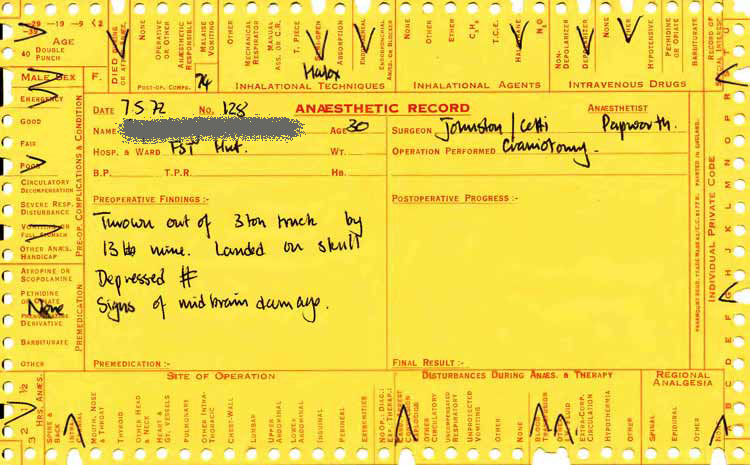 -29 -19 -9 <2
-39
AGE
40 DOUBLE PUNCH
MALE SEX F.
DIED
NONE
OPERATIVE OR OTHER
ANÆSTHETIC RESPONSIBLE
MALAISE VOMITING
OTHER
MECHANICAL RESPIRATOR
MANUAL ASS. OR C.R.
T. PIECE
ABSORPTION
ENDOTRACHEAL
NONE
OTHER
ETHER
C₃H₆
T.C.E.
N₂O
NON-DEPOLARIZER
DEPOLARIZER
NONE
OTHER
HYPOTENSIVE
PETHIDINE OR OPIATE
BARBITURATE
RECORD OF SPECIAL INTEREST
POST-OP. COMPS.
INHALATIONAL TECHNIQUES
INHALATIONAL AGENTS
INTRAVENOUS DRUGS
Halox
EMERGENCY
GOOD
FAIR
POOR
CIRCULATORY DECOMPENSATION
SEVERE RESP. DISTURBANCE
VOMITING OR FULL STOMACH
OTHER ANÆS. HANDICAP
PRE-OP. COMPLICATIONS & CONDITION
ATROPINE OR SCOPOLAMINE
PETHIDINE OR OPIATE
None
DERIVATIVE
BARBITURATE
OTHER
PREMEDICATION
DATE 7 5 72 NO. 128 ANÆSTHETIC RECORD ANÆSTHETIST
NAME AGE 30 SURGEON Johnston/Cetti Papworth.
HOSP. & WARD FST Hut. WT. OPERATION PERFORMED Craniotomy
B.P. T.P.R. HB.
PREOPERATIVE FINDINGS :- POSTOPERATIVE PROGRESS :-
Thrown out of 3 ton truck by
13 lb mine. Landed on skull
Depressed #
Signs of midbrain damage.
PREMEDICATION :- FINAL RESULT :-
PRINTED IN ENGLAND.
INDIVIDUAL PRIVATE CODE
SITE OF OPERATION
DISTURBANCES DURING ANÆS. & THERAPY
REGIONAL ANALGESIA
HRS. ANÆS.
3 2 1 ½
SPINE & BACK
MOUTH, NOSE & THROAT
THYROID
OTHER HEAD & NECK
HEART & GT. VESSELS
PULMONARY
OTHER INTRA-THORACIC
CHEST-WALL
LUMBAR
UPPER ABDOMINAL
LOWER ABDOMINAL
INGUINAL
PERINEAL
EXTREMITIES
OTHER CIRCULATORY
UNCOMPENSATED RESPIRATORY
UNEXPECTED VOMITING
OTHER
NONE
EXTRA-CORP. CIRCULATION
HYPOTHERMIA
OTHER
SPINAL
EPIDURAL
OTHER